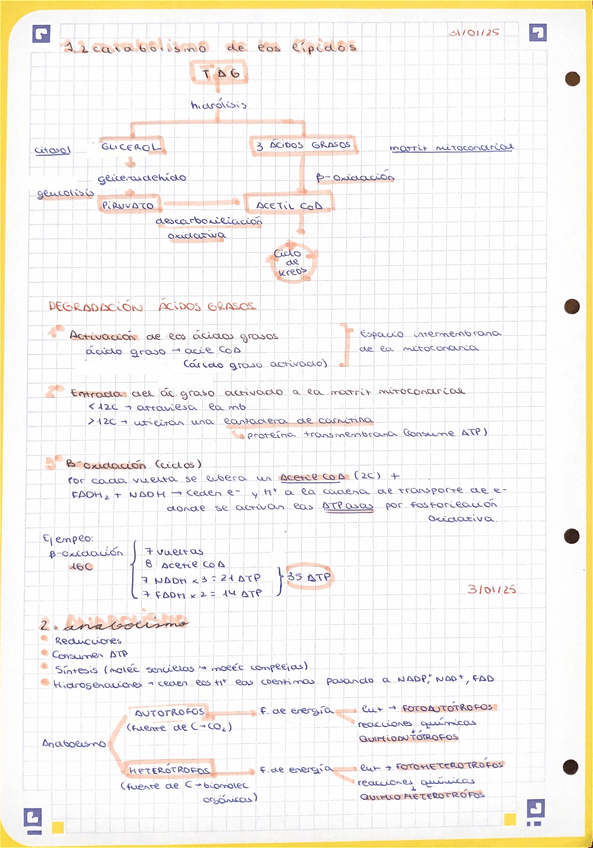 31/01/25
1.2 catabolismo de los lípidos
TAG
hidrólisis
citosol GLICEROL 3 ÁCIDOS GRASOS matriz mitocondrial
gliceraldehído β-oxidación
glucolisis PIRUVATO ACETIL CoA
descarboxilación
oxidativa
Ciclo
de
Krebs
DEGRADACIÓN ÁCIDOS GRASOS
1º Activación de los ácidos grasos Espacio intermembrana
ácido graso → acil CoA de la mitocondria
(ácido graso activado)
2º Entrada del ác. graso activado a la matriz mitocondrial
<12C → atraviesa la mb
>12C → utilizan una lanzadera de carnitina
proteína transmembrana (consume ATP)
3º β-oxidación (ciclos)
Por cada vuelta se libera un Acetil CoA (2C) +
FADH₂ + NADH → ceden e⁻ y H⁺ a la cadena de transporte de e-
donde se activan las ATPasas por fosforilación
oxidativa.
Ejemplo:
β-oxidación 7 vueltas
16C 8 Acetil CoA
7 NADH x 3 = 21 ATP 35 ATP
7 FADH x 2 = 14 ATP
3/01/25
2. anabolismo
Reducciones
Consumen ATP
Síntesis (moléc sencillas → moléc complejas)
Hidrogenaciones → ceden los H⁺ las coenzimas pasando a NADP⁺, NAD⁺, FAD
AUTÓTROFOS F. de energía luz → FOTOAUTÓTROFOS
(fuente de C → CO₂) reacciones químicas
QUIMIOAUTÓTROFOS
Anabolismo
HETERÓTROFOS F. de energía luz → FOTOHETERÓTROFOS
(fuente de C → biomolec reacciones químicas
orgánicas) QUIMIOHETERÓTROFOS